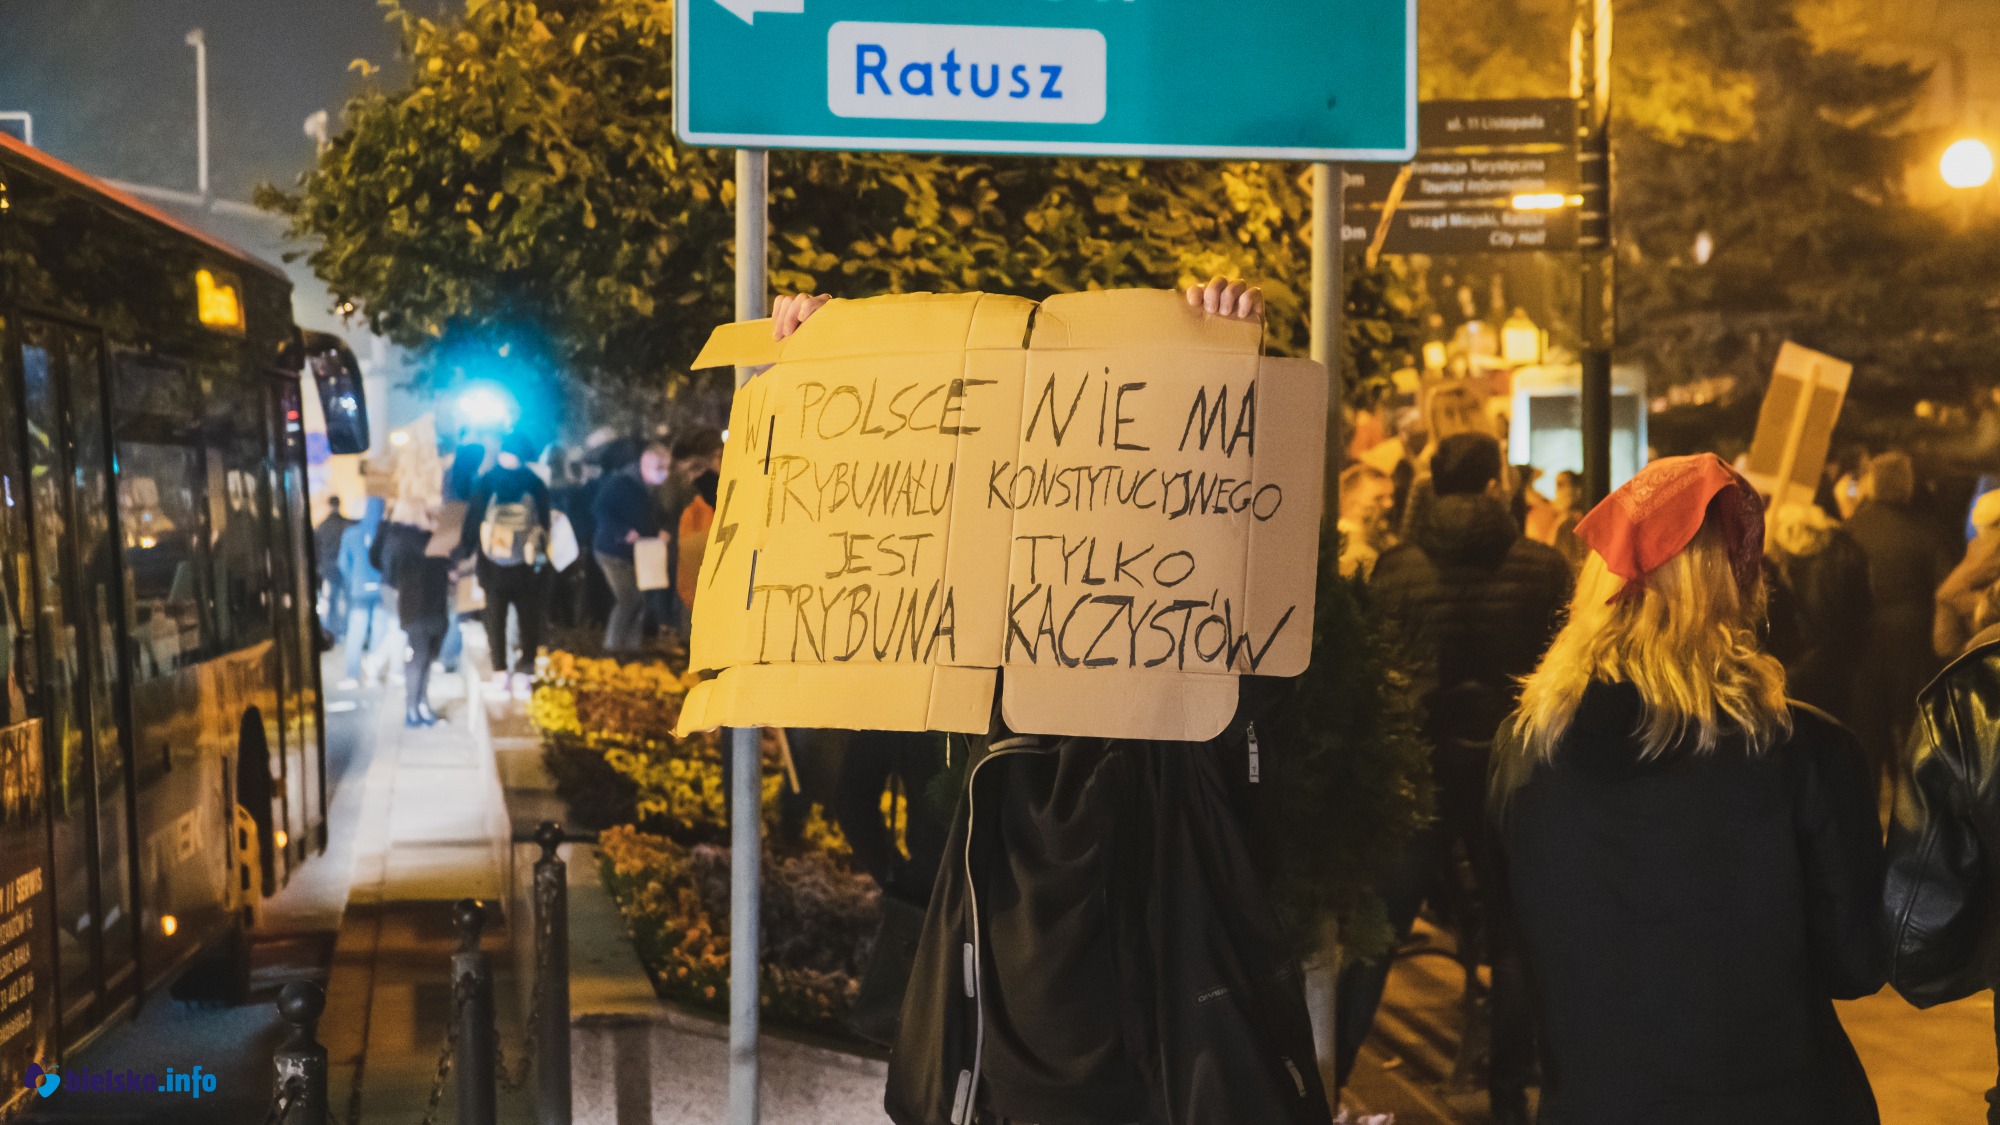 Ratusz
ul. 11 Listopada
Informacja Turystyczna
Tourist Information
Urząd Miejski, Ratusz
City Hall
W POLSCE NIE MA
TRYBUNAŁU KONSTYTUCYJNEGO
JEST TYLKO
TRYBUNA KACZYSTÓW
SERWIS
bielsko.info